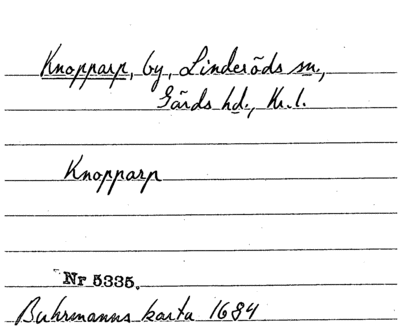 Knopparp, by, Linderöds sn.,
Gärds hd., Kr. l.
Knopparp
Nr 5335.
Buhrmanns karta 1684